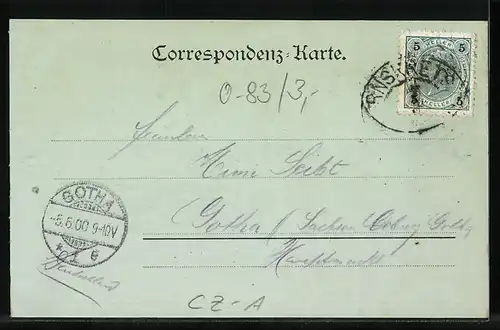 Correspondenz-Karte.
5 HELLER 5
0-83/3,-
Fräulein
Mimi Seibt
Gotha / Sachsen Coburg Gotha
GOTHA
-5.6.00 9-10V
* 1 e
CZ-A